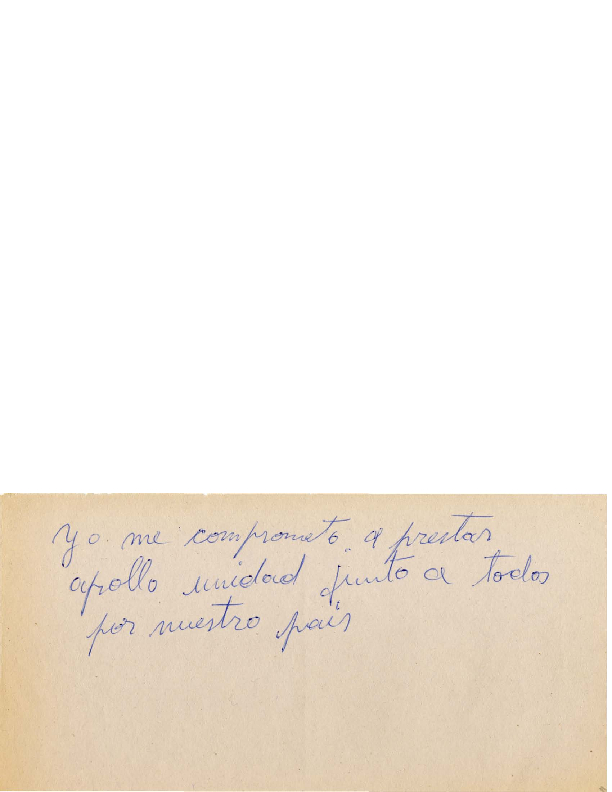 Yo me comprometo a prestar
apollo unidad junto a todos
por nuestro país